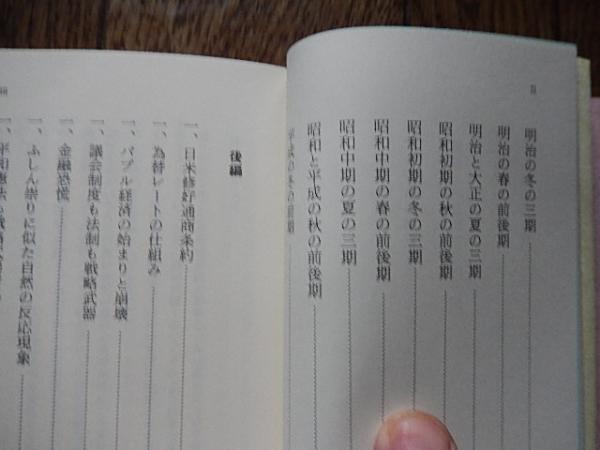 明治の冬の三期
明治の春の前後期
明治と大正の夏の三期
昭和初期の秋の前後期
昭和初期の冬の三期
昭和中期の春の前後期
昭和中期の夏の三期
昭和と平成の秋の前後期
平成の冬の前期
後編
一、日米修好通商条約
一、為替レートの仕組み
一、バブル経済の始まりと崩壊
一、議会制度も法制も戦略武器
一、金融恐慌
一、ふしん祟りに似た自然の反応現象